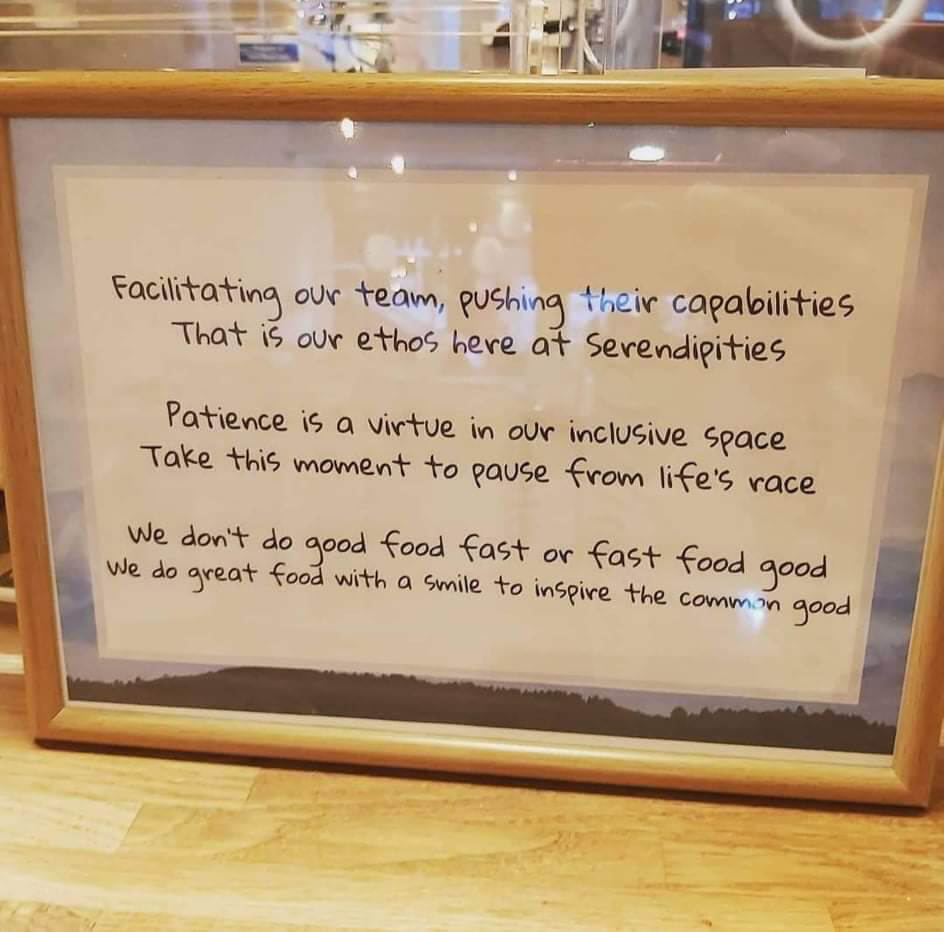 Facilitating our team, pushing their capabilities
That is our ethos here at Serendipities
Patience is a virtue in our inclusive space
Take this moment to pause from life's race
We don't do good food fast or fast food good
We do great food with a smile to inspire the common good